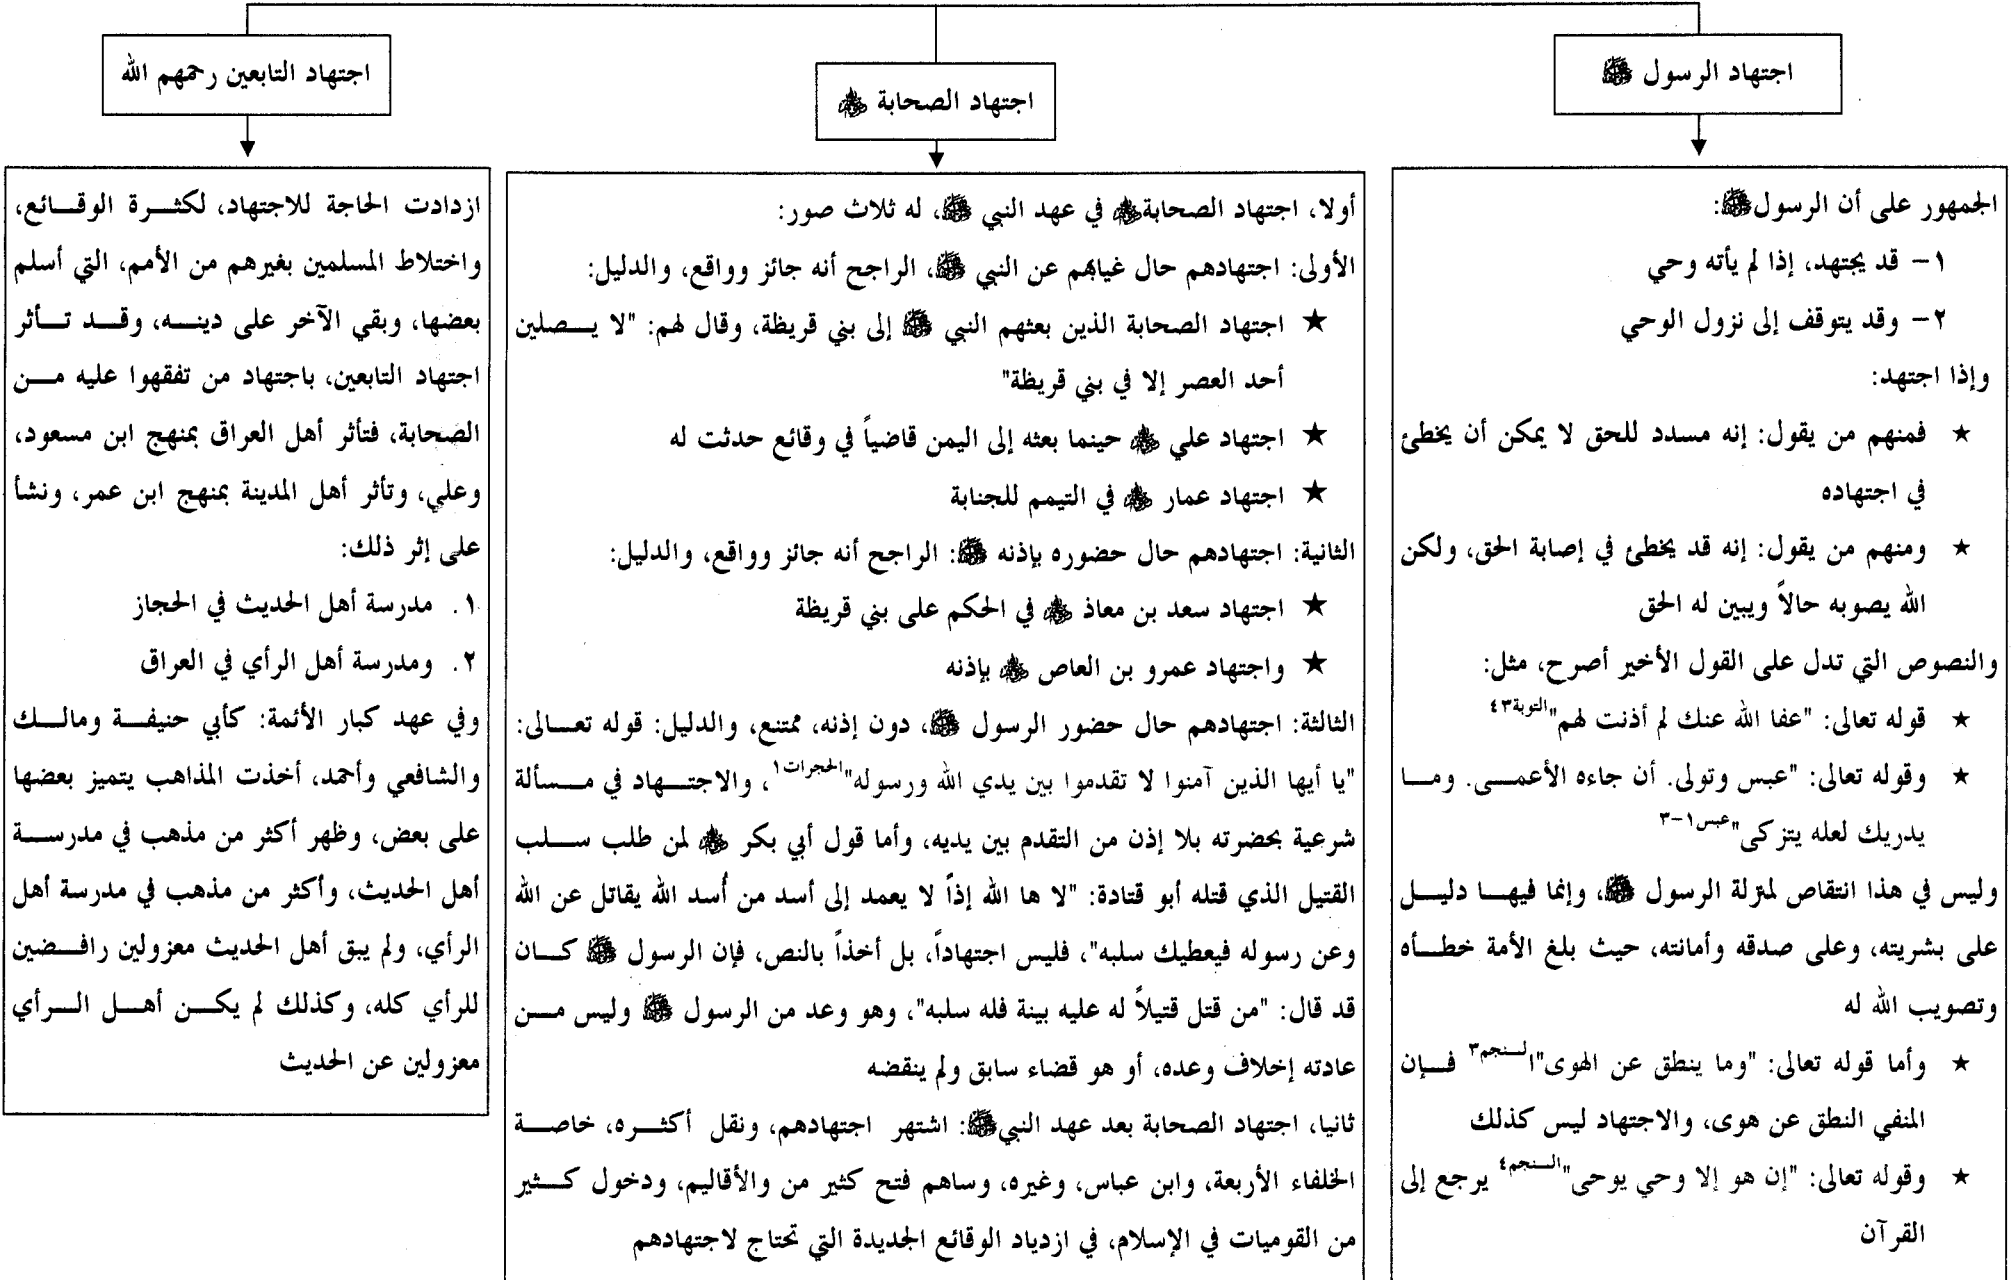 اجتهاد الرسول ﷺ
الجمهور على أن الرسولﷺ:
١- قد يجتهد، إذا لم يأته وحي
٢- وقد يتوقف إلى نزول الوحي
وإذا اجتهد:
★ فمنهم من يقول: إنه مسدد للحق لا يمكن أن يخطئ
في اجتهاده
★ ومنهم من يقول: إنه قد يخطئ في إصابة الحق، ولكن
الله يصوبه حالاً ويبين له الحق
والنصوص التي تدل على القول الأخير أصرح، مثل:
★ قوله تعالى: "عفا الله عنك لم أذنت لهم"التوبة٤٣
★ وقوله تعالى: "عبس وتولى. أن جاءه الأعمـــى. ومـــا
يدريك لعله يتزكى"عبس١-٣
وليس في هذا انتقاص لمنزلة الرسول ﷺ، وإنما فيهـــا دليـــل
على بشريته، وعلى صدقه وأمانته، حيث بلغ الأمة خطـــأه
وتصويب الله له
★ وأما قوله تعالى: "وما ينطق عن الهوى"النجم٣ فـــإن
المنفي النطق عن هوى، والاجتهاد ليس كذلك
★ وقوله تعالى: "إن هو إلا وحي يوحى"النجم٤ يرجع إلى
القرآن
اجتهاد الصحابة ﷺ
أولا، اجتهاد الصحابة في عهد النبي ﷺ، له ثلاث صور:
الأولى: اجتهادهم حال غيابهم عن النبي ﷺ، الراجح أنه جائز وواقع، والدليل:
★ اجتهاد الصحابة الذين بعثهم النبي ﷺ إلى بني قريظة، وقال لهم: "لا يـــصلين
أحد العصر إلا في بني قريظة"
★ اجتهاد علي حينما بعثه إلى اليمن قاضياً في وقائع حدثت له
★ اجتهاد عمار في التيمم للجنابة
الثانية: اجتهادهم حال حضوره بإذنه ﷺ: الراجح أنه جائز وواقع، والدليل:
★ اجتهاد سعد بن معاذ في الحكم على بني قريظة
★ واجتهاد عمرو بن العاص بإذنه
الثالثة: اجتهادهم حال حضور الرسول ﷺ، دون إذنه، ممتنع، والدليل: قوله تعـــالى:
"يا أيها الذين آمنوا لا تقدموا بين يدي الله ورسوله"الحجرات١، والاجتـــهاد في مـــسألة
شرعية بحضرته بلا إذن من التقدم بين يديه، وأما قول أبي بكر لمن طلب ســـلب
القتيل الذي قتله أبو قتادة: "لا ها الله إذاً لا يعمد إلى أسد من أُسد الله يقاتل عن الله
وعن رسوله فيعطيك سلبه"، فليس اجتهاداً، بل أخذاً بالنص، فإن الرسول ﷺ كـــان
قد قال: "من قتل قتيلاً له عليه بينة فله سلبه"، وهو وعد من الرسول ﷺ وليس مـــن
عادته إخلاف وعده، أو هو قضاء سابق ولم ينقضه
ثانيا، اجتهاد الصحابة بعد عهد النبيﷺ: اشتهر اجتهادهم، ونقل أكثـــره، خاصـــة
الخلفاء الأربعة، وابن عباس، وغيره، وساهم فتح كثير من والأقاليم، ودخول كـــثير
من القوميات في الإسلام، في ازدياد الوقائع الجديدة التي تحتاج لاجتهادهم
اجتهاد التابعين رحمهم الله
ازدادت الحاجة للاجتهاد، لكثـــرة الوقـــائع،
واختلاط المسلمين بغيرهم من الأمم، التي أسلم
بعضها، وبقي الآخر على دينـــه، وقـــد تـــأثر
اجتهاد التابعين، باجتهاد من تفقهوا عليه مـــن
الصحابة، فتأثر أهل العراق بمنهج ابن مسعود،
وعلي، وتأثر أهل المدينة بمنهج ابن عمر، ونشأ
على إثر ذلك:
١. مدرسة أهل الحديث في الحجاز
٢. ومدرسة أهل الرأي في العراق
وفي عهد كبار الأئمة: كأبي حنيفـــة ومالـــك
والشافعي وأحمد، أخذت المذاهب يتميز بعضها
على بعض، وظهر أكثر من مذهب في مدرســـة
أهل الحديث، وأكثر من مذهب في مدرسة أهل
الرأي، ولم يبق أهل الحديث معزولين رافـــضين
للرأي كله، وكذلك لم يكـــن أهـــل الـــرأي
معزولين عن الحديث